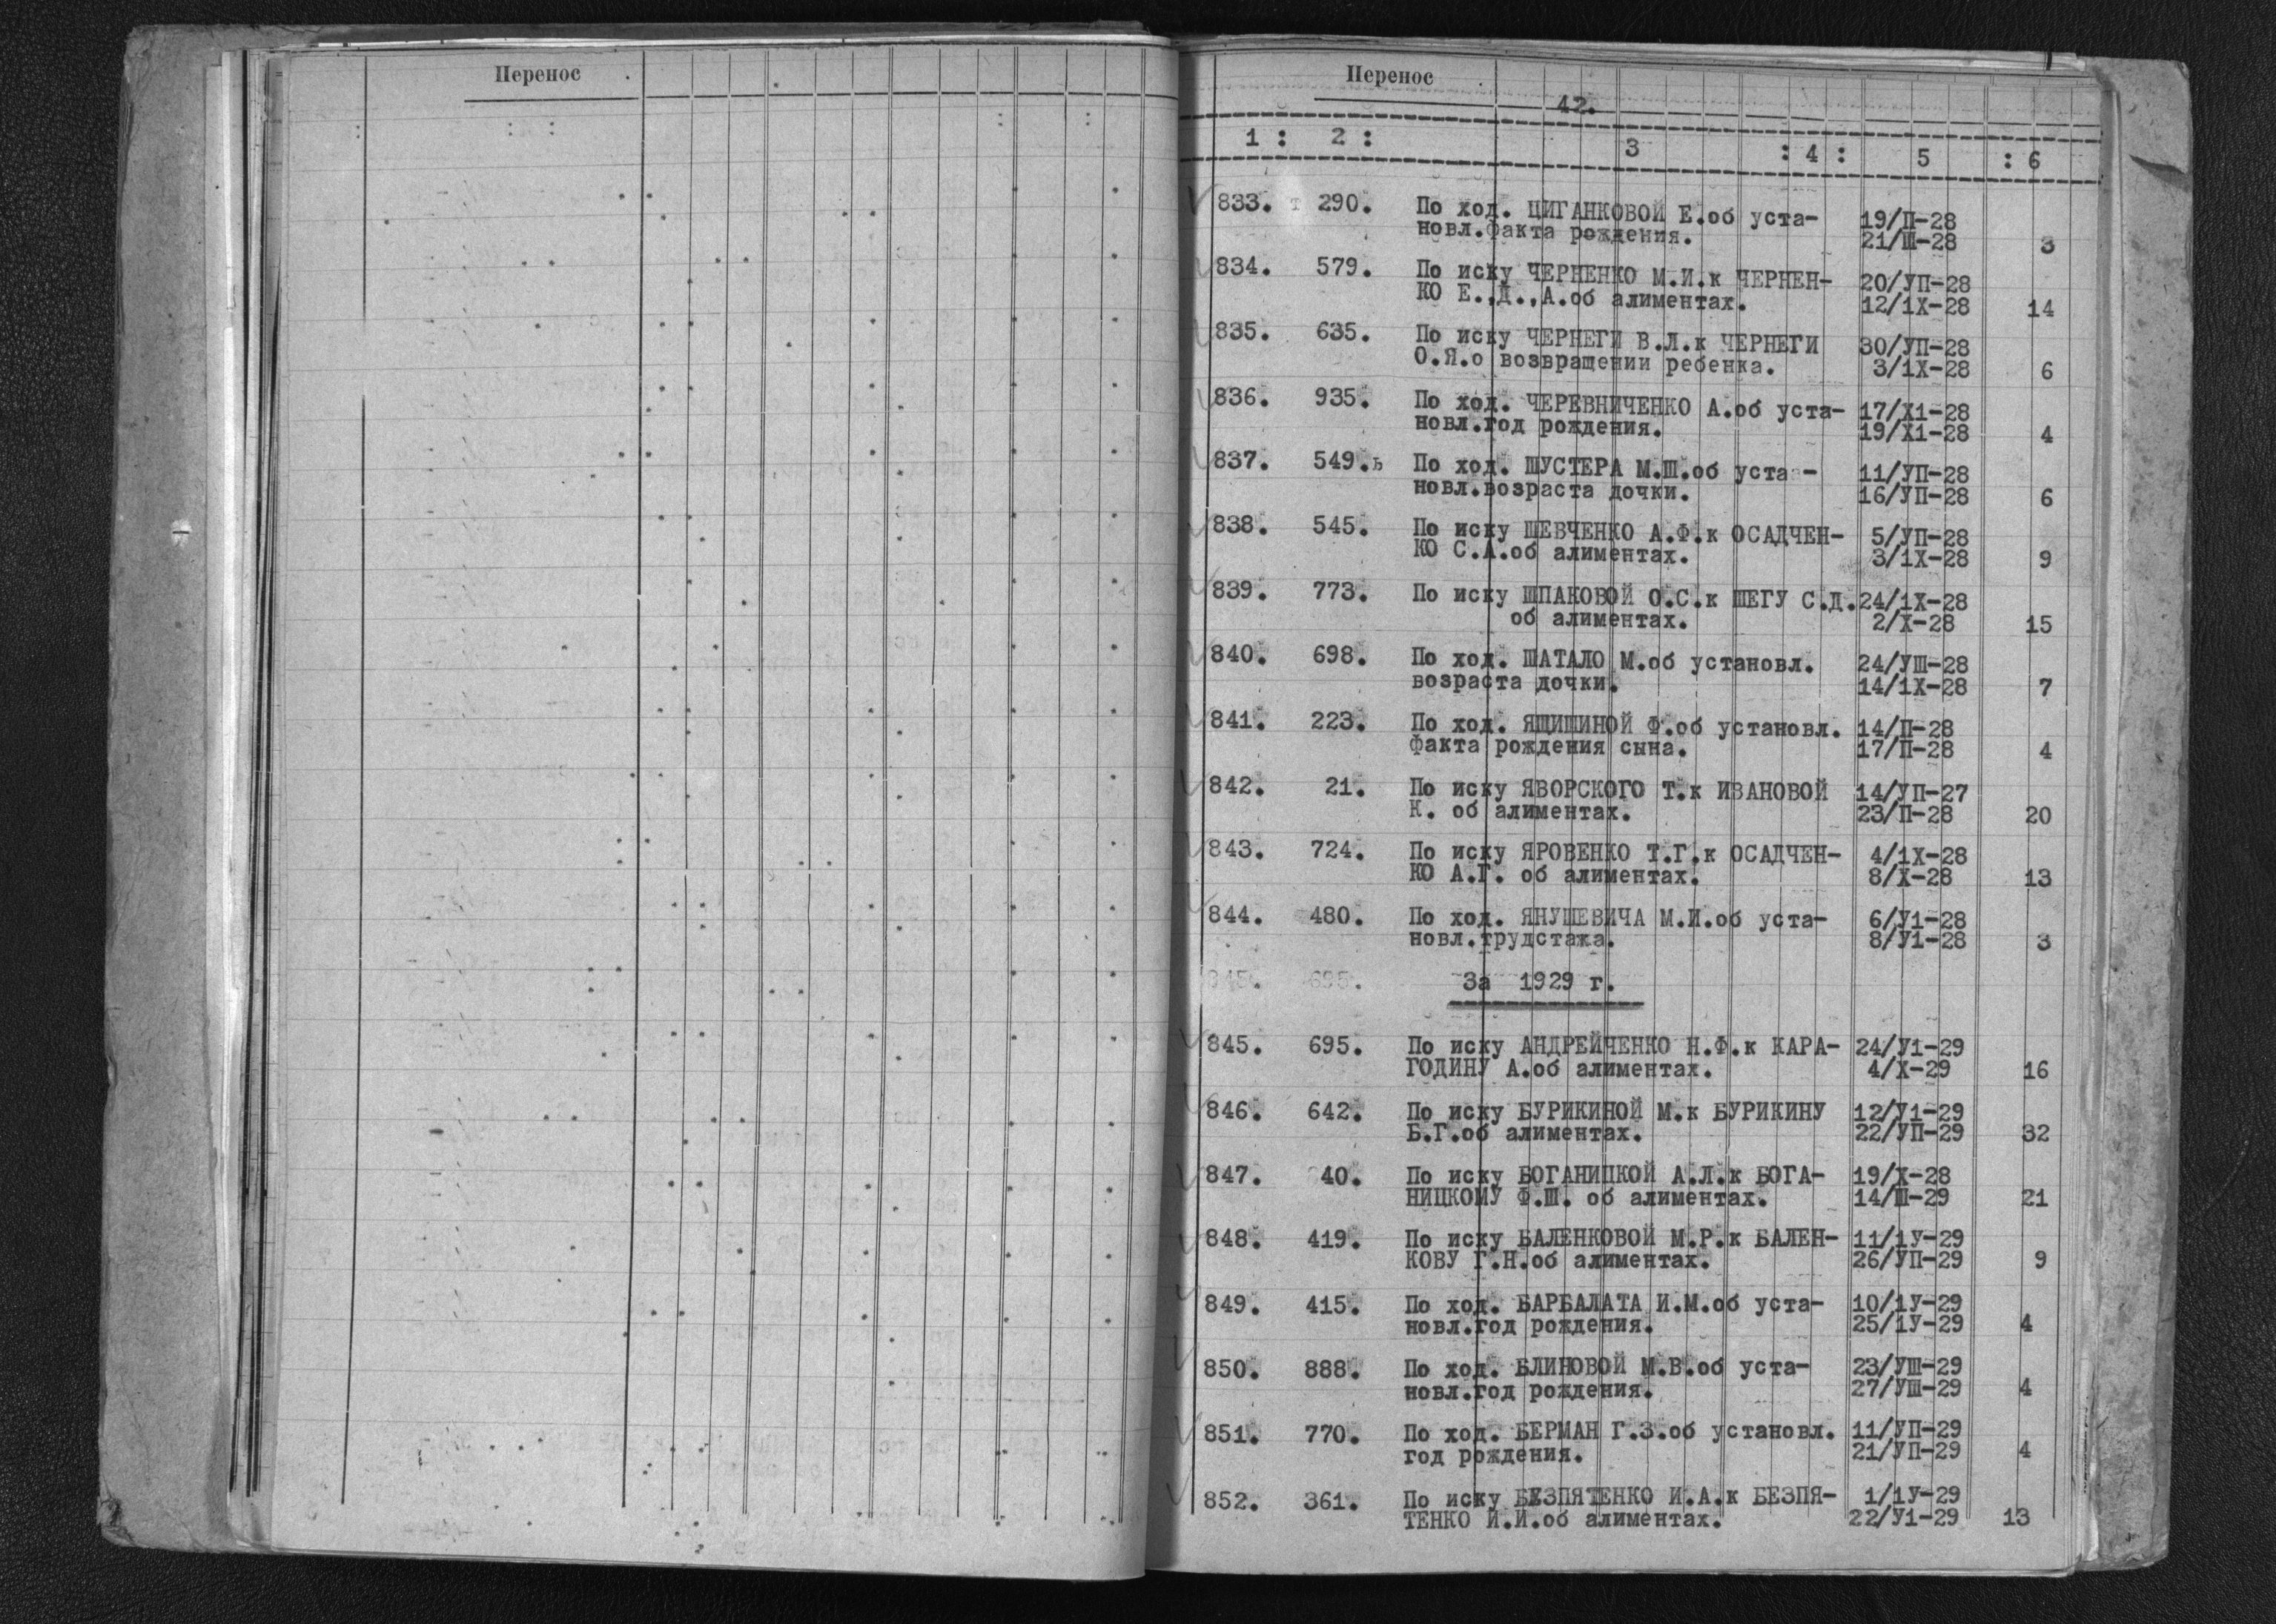 Перенос
Перенос
42.
1 : 2 : 3 : 4 : 5 : 6
833. 290. По ход. ЦИГАНКОВОЙ Е.об уста- 19/П-28
новл.факта рождения. 21/Ш-28 3
834. 579. По иску ЧЕРНЕНКО М.И.к ЧЕРНЕН- 20/УП-28
КО Е.,Д.,А.об алиментах. 12/1Х-28 14
835. 635. По иску ЧЕРНЕГИ В.Л.к ЧЕРНЕГИ 30/УП-28
О.Я.о возвращении ребенка. 3/1Х-28 6
836. 935. По ход. ЧЕРЕВНИЧЕНКО А.об уста- 17/Х1-28
новл.год рождения. 19/Х1-28 4
837. 549. По ход. ШУСТЕРА М.Ш.об уста- 11/УП-28
новл.возраста дочки. 16/УП-28 6
838. 545. По иску ШЕВЧЕНКО А.Ф.к ОСАДЧЕН- 5/УП-28
КО С.А.об алиментах. 3/1Х-28 9
839. 773. По иску ШПАКОВОЙ О.С.к ШЕГУ С.Д. 24/1Х-28
об алиментах. 2/Х-28 15
840. 698. По ход. ШАТАЛО М.об установл. 24/УШ-28
возраста дочки. 14/1Х-28 7
841. 223. По ход. ЯЩИШИНОЙ Ф.об установл. 14/П-28
факта рождения сына. 17/П-28 4
842. 21. По иску ЯВОРСКОГО Т.к ИВАНОВОЙ 14/УП-27
К. об алиментах. 23/П-28 20
843. 724. По иску ЯРОВЕНКО Т.Г.к ОСАДЧЕН- 4/1Х-28
КО А.Г. об алиментах. 8/Х-28 13
844. 480. По ход. ЯНУШЕВИЧА М.И.об уста- 6/У1-28
новл.трудстажа. 8/У1-28 3
845. 695. За 1929 г.
845. 695. По иску АНДРЕЙЧЕНКО Н.Ф.к КАРА- 24/У1-29
ГОДИНУ А.об алиментах. 4/Х-29 16
846. 642. По иску БУРИКИНОЙ М.к БУРИКИНУ 12/У1-29
Б.Г.об алиментах. 22/УП-29 32
847. 40. По иску БОГАНИЦКОЙ А.Л.к БОГА- 19/Х-28
НИЦКОМУ Ф.Ш. об алиментах. 14/Ш-29 21
848. 419. По иску БАЛЕНКОВОЙ М.Р.к БАЛЕН- 11/1У-29
КОВУ Г.Н.об алиментах. 26/УП-29 9
849. 415. По ход. БАРБАЛАТА И.М.об уста- 10/1У-29
новл.год рождения. 25/1У-29 4
850. 888. По ход. БЛИНОВОЙ М.В.об уста- 23/УШ-29
новл.год рождения. 27/УШ-29 4
851. 770. По ход. БЕРМАН Г.З.об установл. 11/УП-29
год рождения. 21/УП-29 4
852. 361. По иску БЕЗПЯТЕНКО И.А.к БЕЗПЯ- 1/1У-29
ТЕНКО И.И.об алиментах. 22/У1-29 13